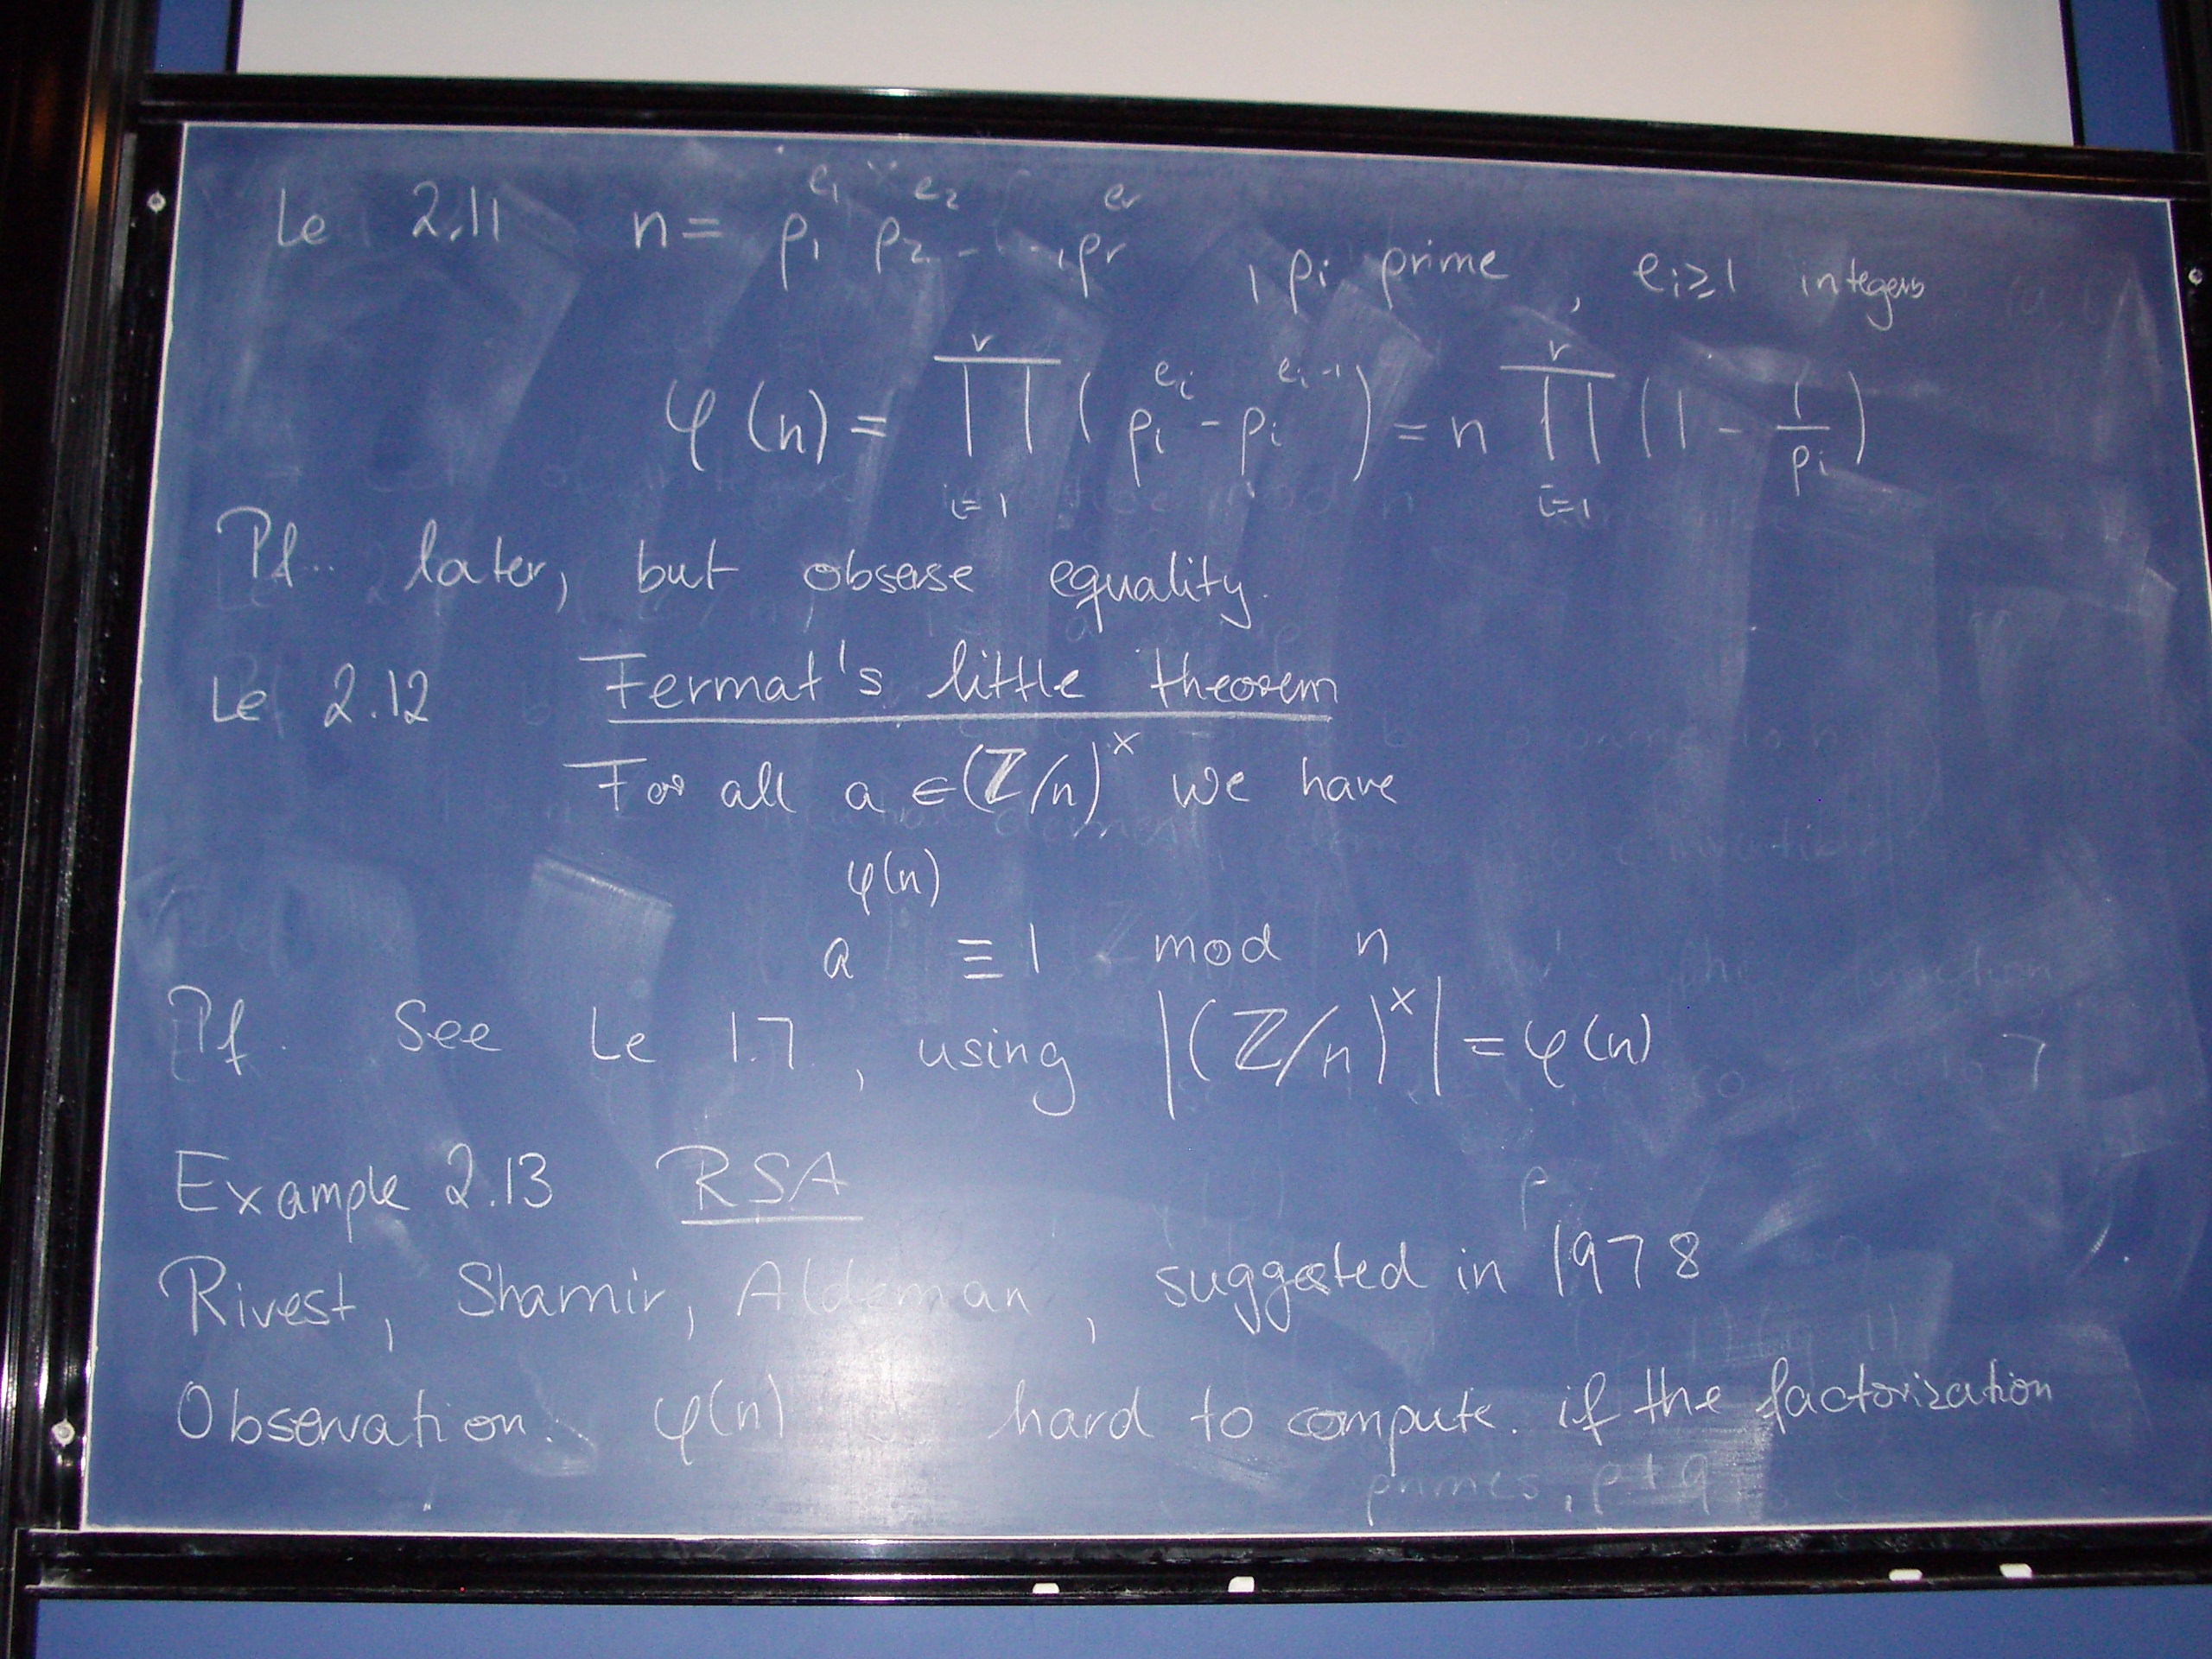 Le 2.11 n = p₁^{e₁} p₂^{e₂} - - - p_r^{e_r} , p_i prime , e_i ≥ 1 integers
φ(n) = ∏_{i=1}^{r} ( p_i^{e_i} - p_i^{e_i-1} ) = n ∏_{i=1}^{r} ( 1 - 1/p_i )
Pf.. later, but obserse equality.
Le 2.12 Fermat's little theorem
For all a ∈ (ℤ/n)^× we have
a^{φ(n)} ≡ 1 mod n
Pf. See Le 1.7 , using |(ℤ/n)^×| = φ(n)
Example 2.13 RSA
Rivest, Shamir, Aldeman , suggested in 1978
Observation: φ(n) hard to compute. if the factorization
primes, p ≠ q